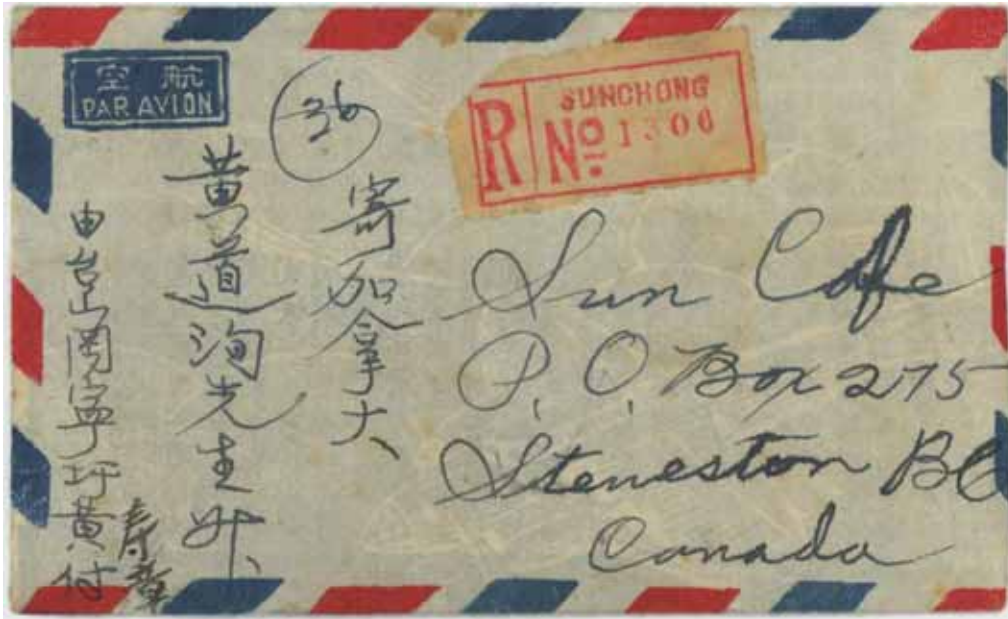 空航
PAR AVION
36
SUNCHONG
R No 1306
寄加拿大
黄道洵先生升
由台山冈宁圩黄寿章付
Sun Cafe
P. O. Box 275
Steveston BC
Canada